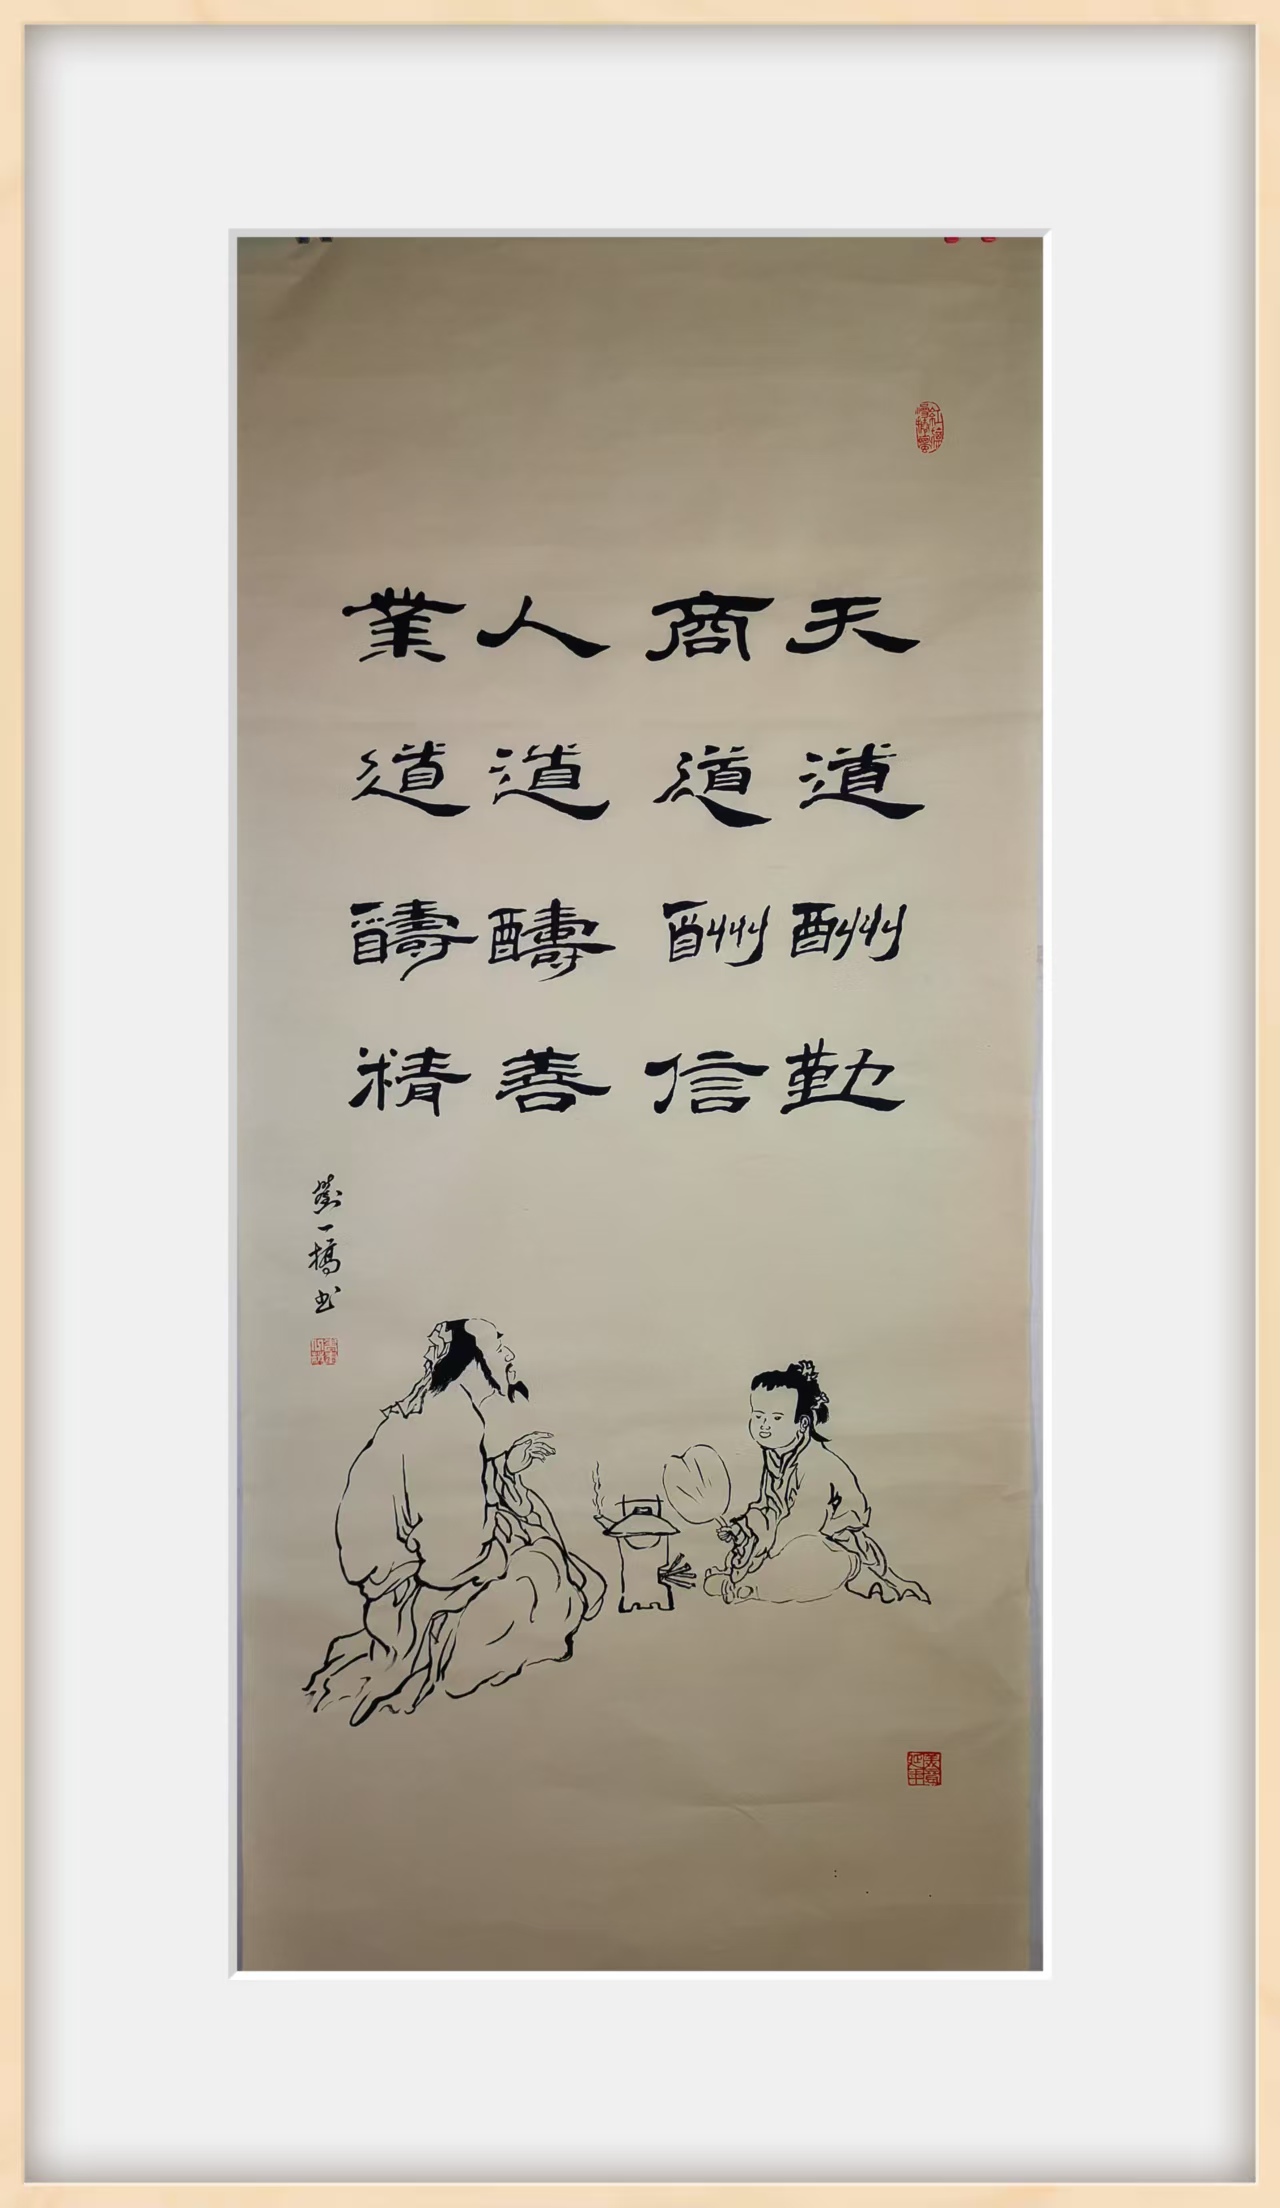 天道酬勤
商道酬信
人道醻善
業道醻精
劉一橋书